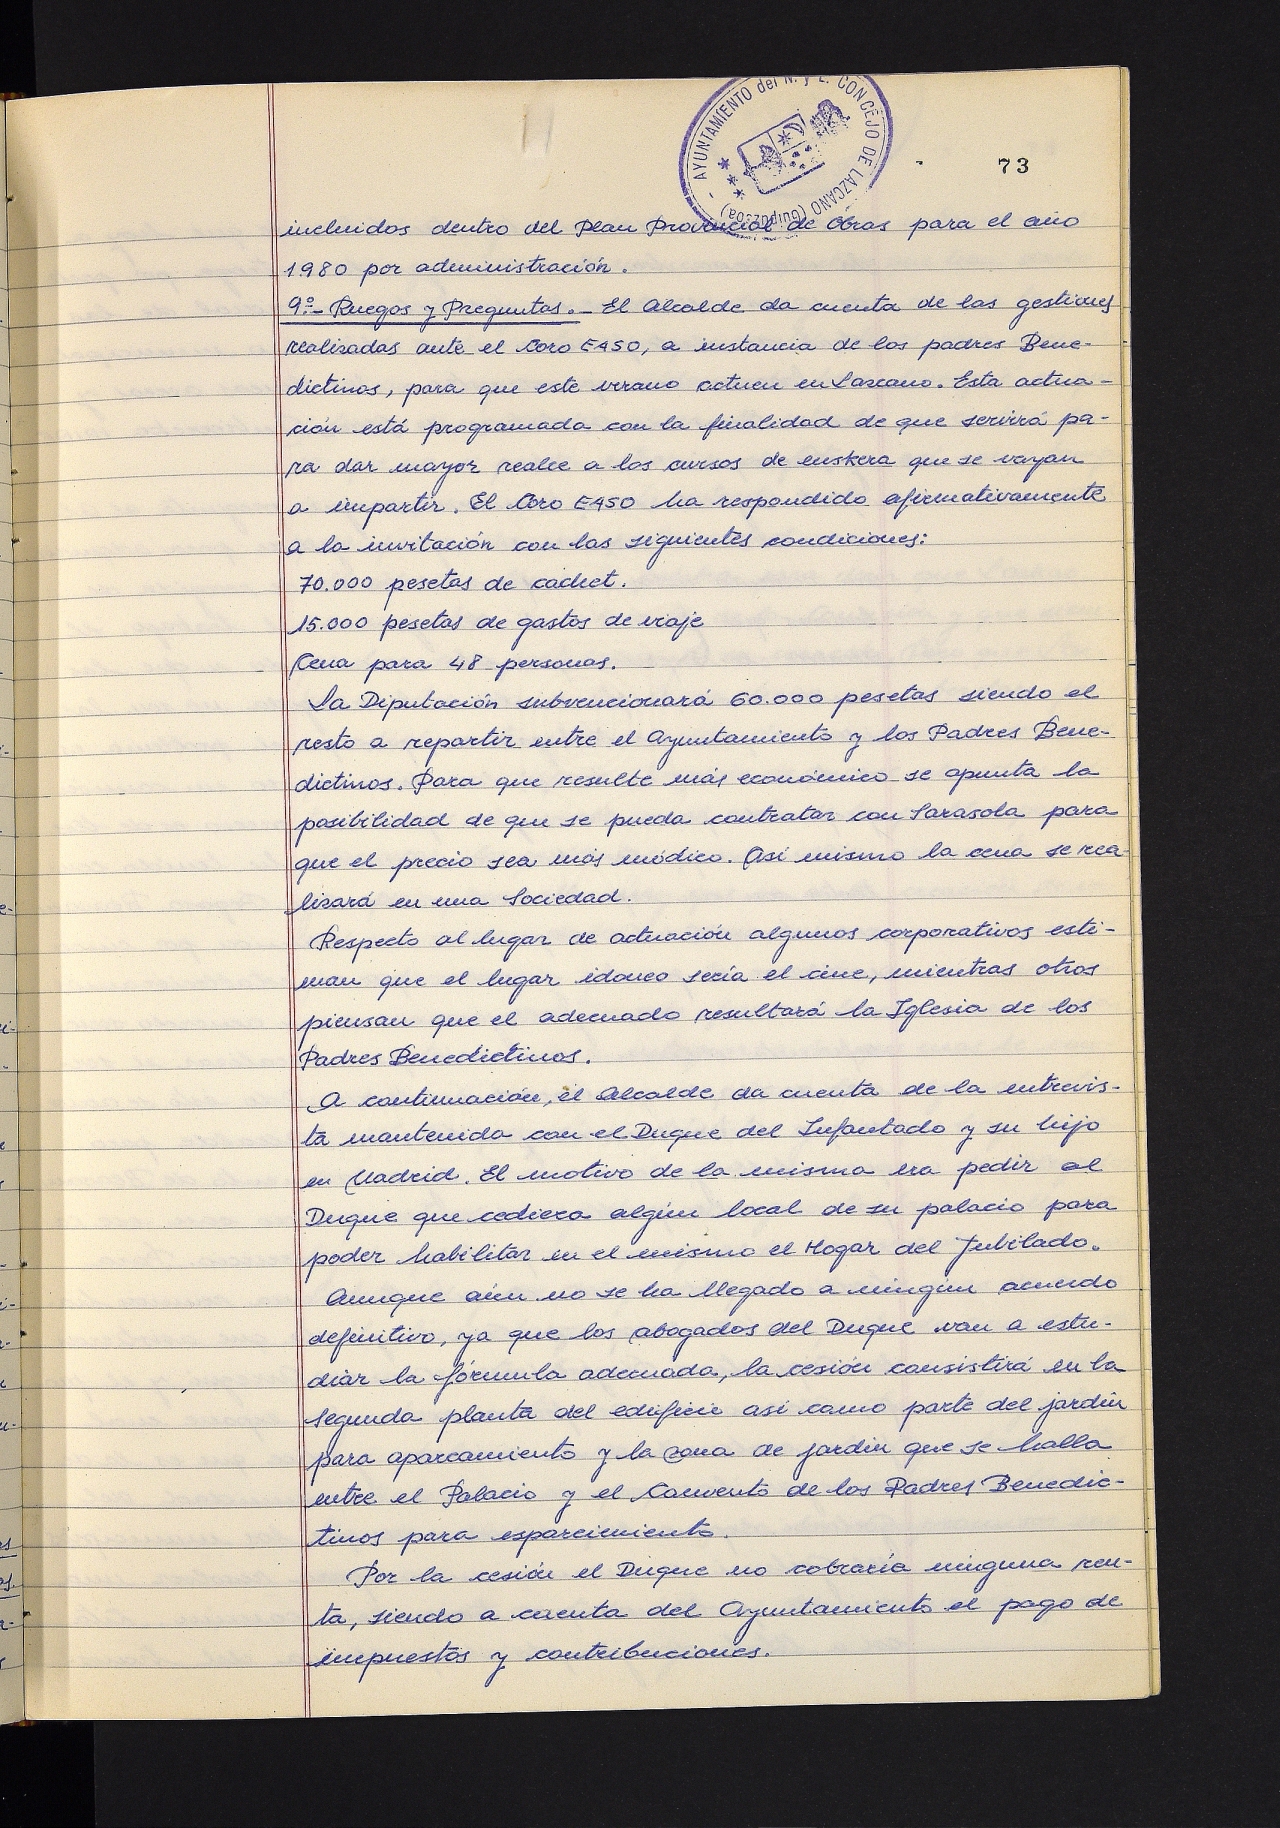 AYUNTAMIENTO del N. y L. CONCEJO DE LAZCANO (Guipúzcoa)
73
incluidos dentro del Plan Provincial de Obras para el año
1980 por administración.
9º.- Ruegos y Preguntas.- El Alcalde da cuenta de las gestiones
realizadas ante el Coro EASO, a instancia de los padres Bene-
dictinos, para que este verano actuen en Lazcano. Esta actua-
ción está programada con la finalidad de que servirá pa-
ra dar mayor realce a los cursos de euskera que se vayan
a impartir. El Coro EASO ha respondido afirmativamente
a la invitación con las siguientes condiciones:
70.000 pesetas de cachet.
15.000 pesetas de gastos de viaje
Cena para 48 personas.
La Diputación subvencionará 60.000 pesetas siendo el
resto a repartir entre el Ayuntamiento y los Padres Bene-
dictinos. Para que resulte más económico se apunta la
posibilidad de que se pueda contratar con Sarasola para
que el precio sea más módico. Así mismo la cena se rea-
lizará en una Sociedad.
Respecto al lugar de actuación algunos corporativos esti-
man que el lugar idoneo sería el cine, mientras otros
piensan que el adecuado resultará la Iglesia de los
Padres Benedictinos.
A continuación, el Alcalde da cuenta de la entrevis-
ta mantenida con el Duque del Infantado y su hijo
en Madrid. El motivo de la misma era pedir al
Duque que cediera algún local de su palacio para
poder habilitar en el mismo el Hogar del Jubilado.
Aunque aún no se ha llegado a ningún acuerdo
definitivo, ya que los abogados del Duque van a estu-
diar la fórmula adecuada, la cesión consistirá en la
segunda planta del edificio así como parte del jardín
para aparcamiento y la zona de jardín que se halla
entre el Palacio y el Convento de los Padres Benedic-
tinos para esparcimiento.
Por la cesión el Duque no cobraría ninguna ren-
ta, siendo a cuenta del Ayuntamiento el pago de
impuestos y contribuciones.